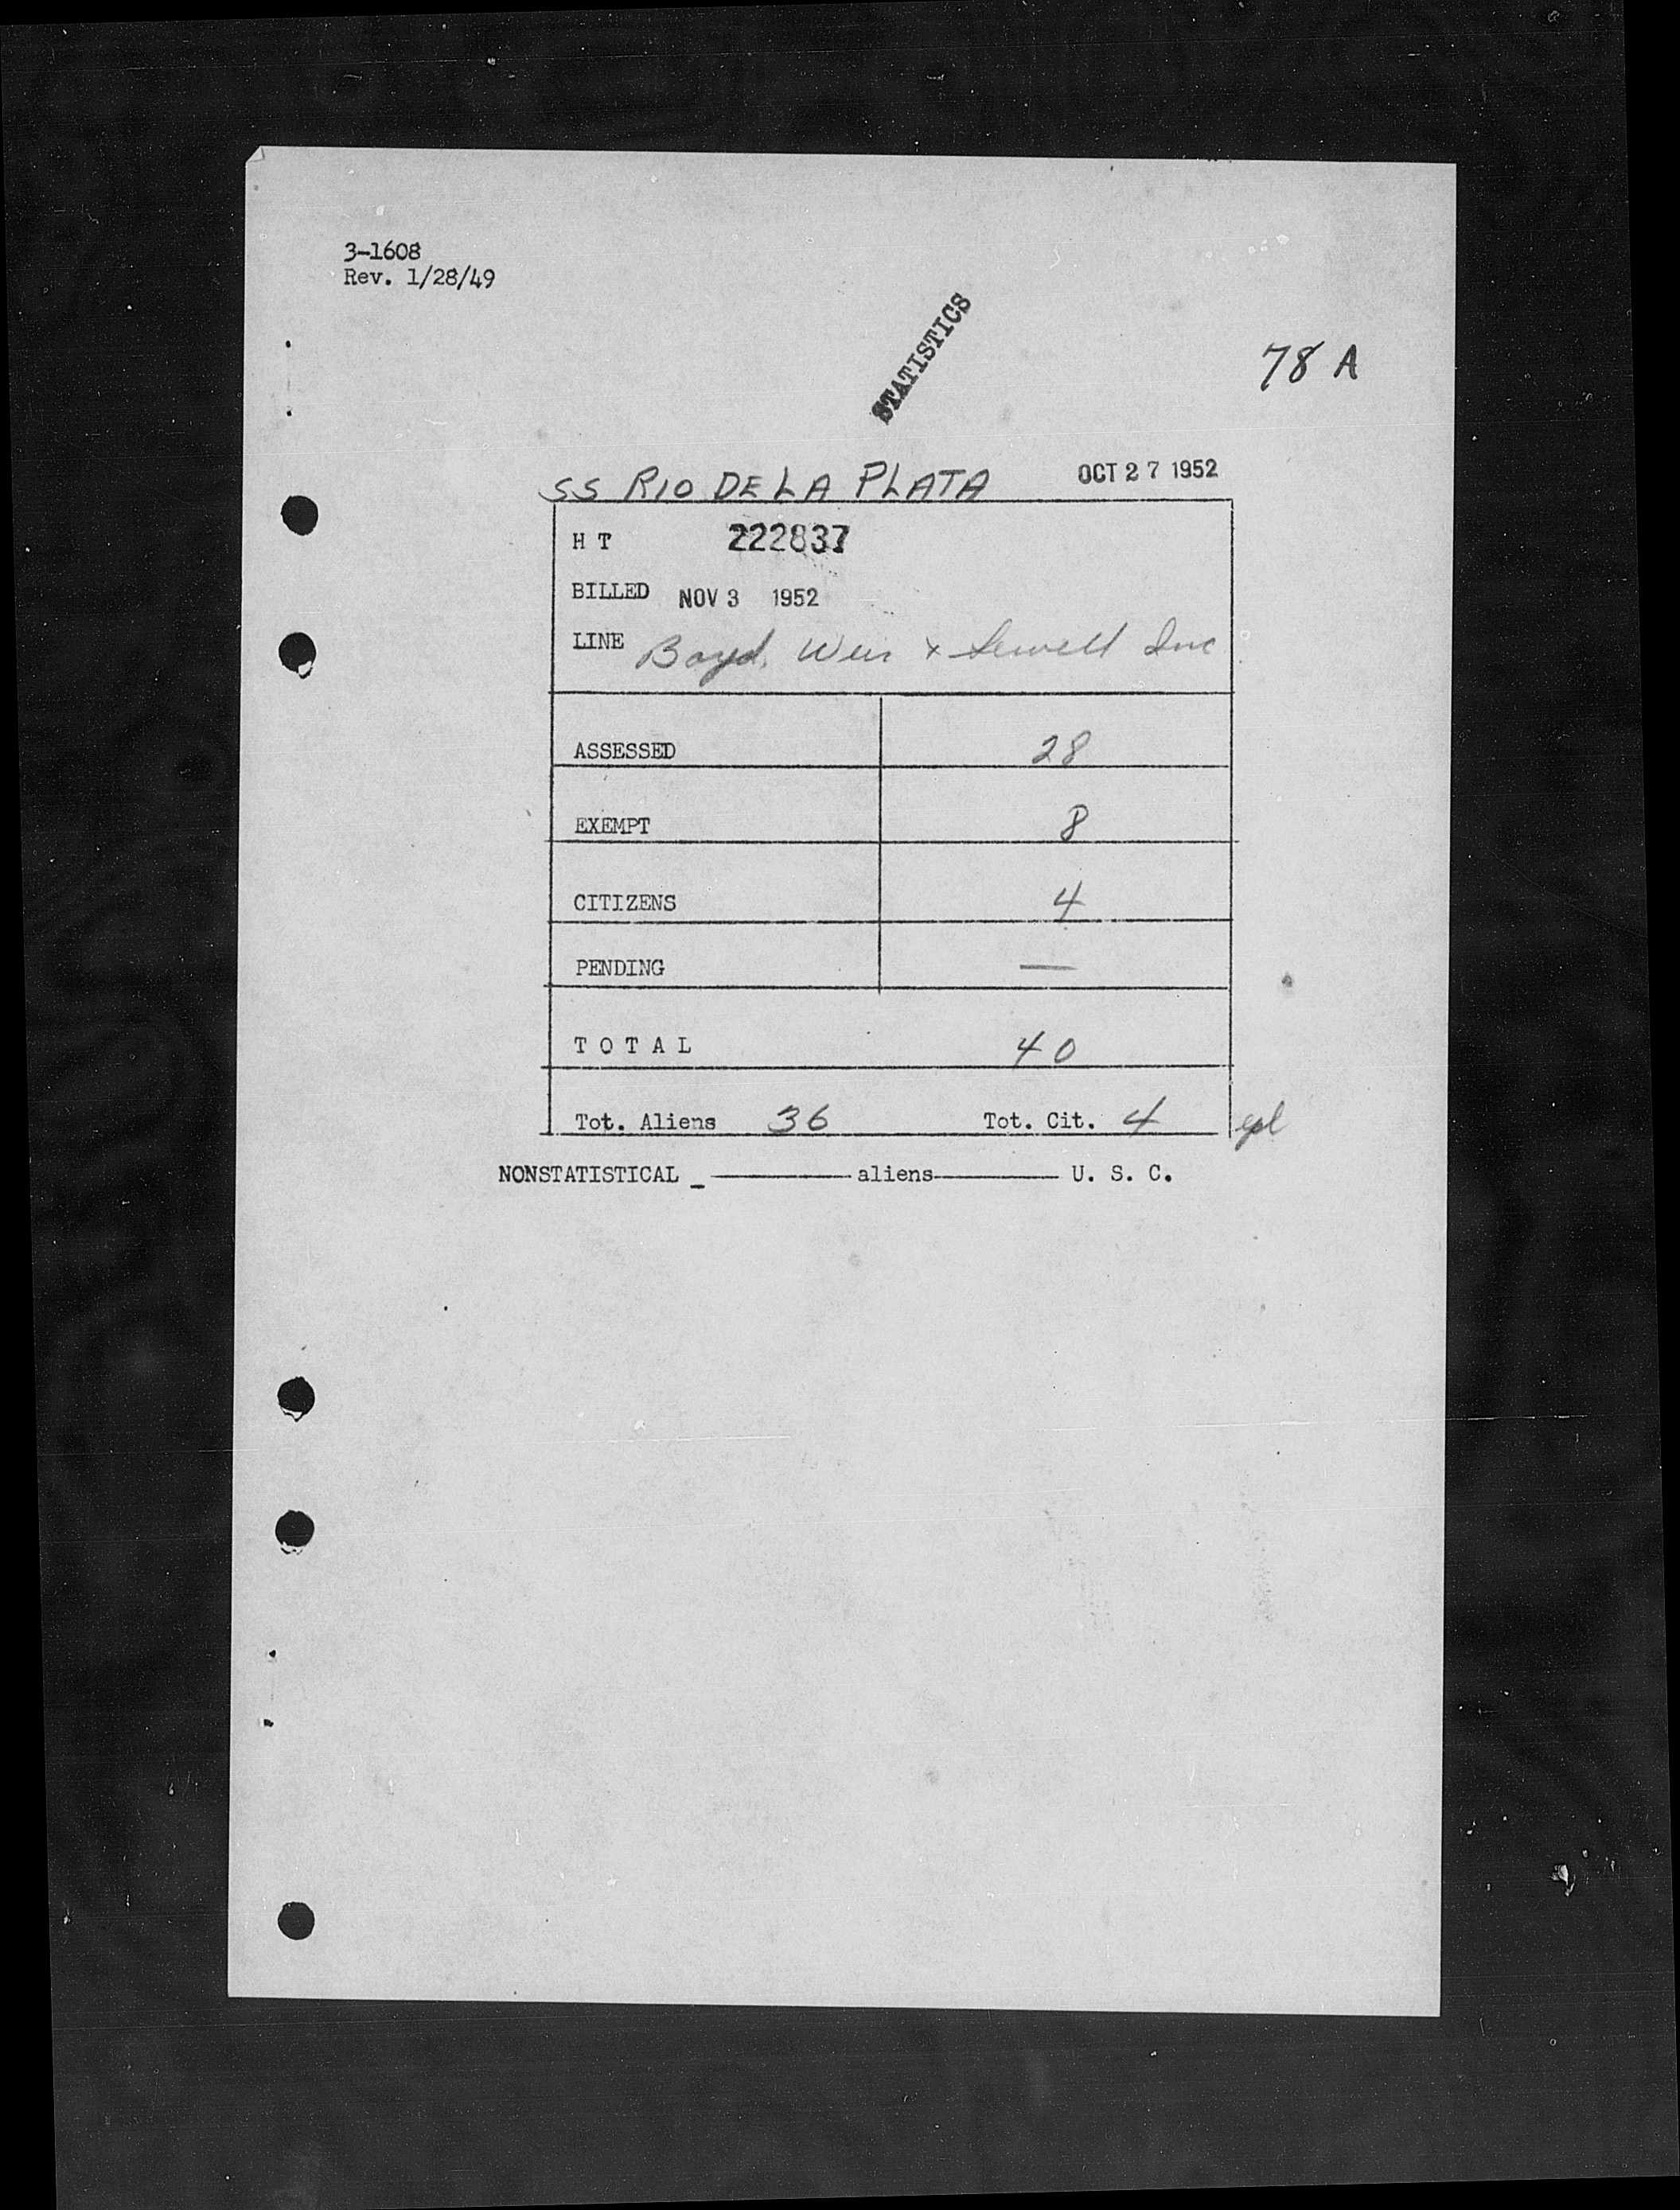 3-1608
Rev. 1/28/49
STATISTICS
78 A
SS RIO DE LA PLATA OCT 27 1952
H T 222837
BILLED NOV 3 1952
LINE Boyd, Weir & Sewell Inc
ASSESSED 28
EXEMPT 8
CITIZENS 4
PENDING —
T O T A L 40
Tot. Aliens 36 Tot. Cit. 4
NONSTATISTICAL _ ———— aliens ———— U. S. C.